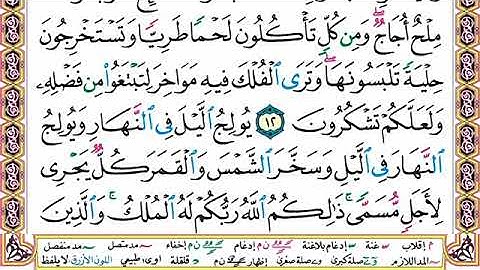 مِلْحٌ أُجَاجٌ ۖ وَمِن كُلٍّ تَأْكُلُونَ لَحْمًا طَرِيًّا وَتَسْتَخْرِجُونَ
حِلْيَةً تَلْبَسُونَهَا ۖ وَتَرَى ٱلْفُلْكَ فِيهِ مَوَاخِرَ لِتَبْتَغُوا۟ مِن فَضْلِهِۦ
وَلَعَلَّكُمْ تَشْكُرُونَ ١٢ يُولِجُ ٱلَّيْلَ فِى ٱلنَّهَارِ وَيُولِجُ
ٱلنَّهَارَ فِى ٱلَّيْلِ وَسَخَّرَ ٱلشَّمْسَ وَٱلْقَمَرَ كُلٌّ يَجْرِى
لِأَجَلٍ مُّسَمًّى ۚ ذَٰلِكُمُ ٱللَّهُ رَبُّكُمْ لَهُ ٱلْمُلْكُ ۚ وَٱلَّذِينَ
م إقلاب غنة إدغام بلاغنة ن م إدغام ن م إخفاء مد متصل مد منفصل
المد اللازم صلة كبرى وصلة صغرى إظهار ن م قلقلة اوى: طبيعي اللون الأزرق لا يلفظ